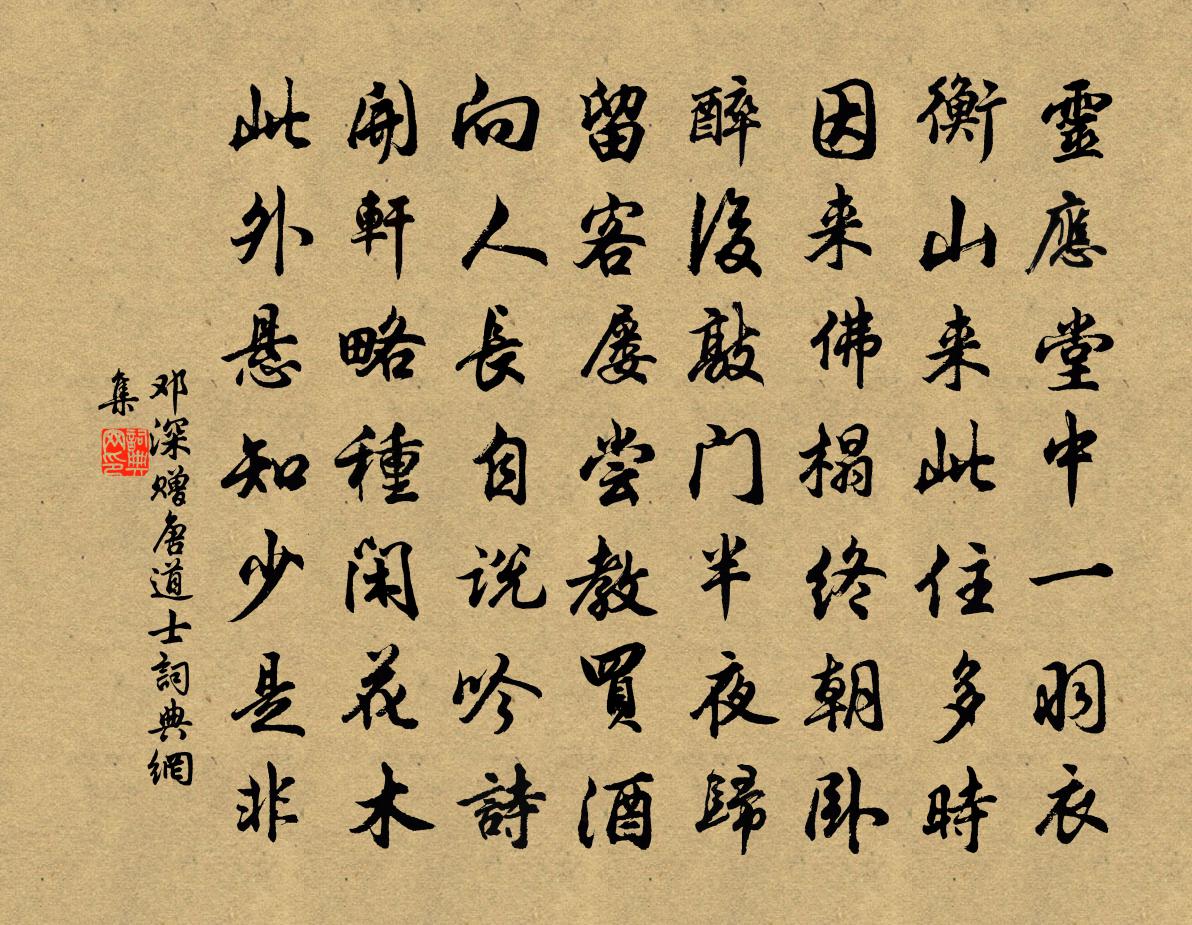 靈應堂中一羽衣
衡山来此住多時
因来佛榻終朝卧
醉後敲门半夜歸
留客屡尝教買酒
向人長自说吟詩
開軒略種闲花木
此外悬知少是非
邓深赠唐道士詞典網
集
詞典
网印